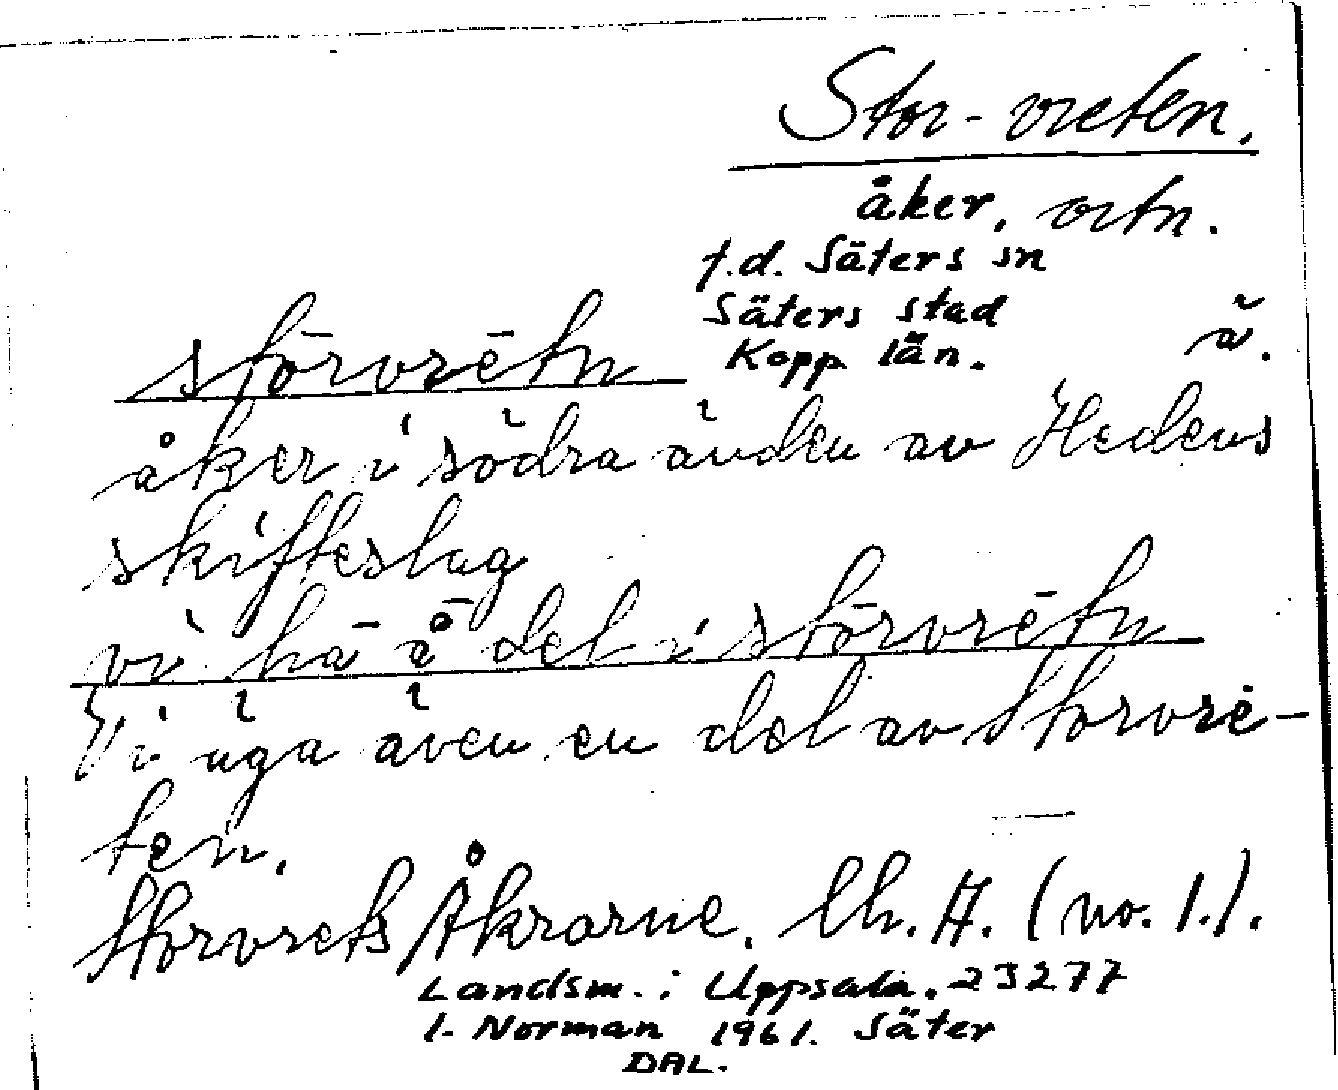 Stor-vreten.
åker, vretn.
f.d. Säters sn
Säters stad
Kopp län. ă.
stōrvrētn
åker i södra änden av Hedens
skifteslag
vi hā å̄ del i stōrvrētn
Vi äga även en del av Storvre-
ten.
Storvrets Åkrarne. Ch. A. (no. 1.).
Landsm. i Uppsala. 23277
I. Norman 1961. Säter
DAL.